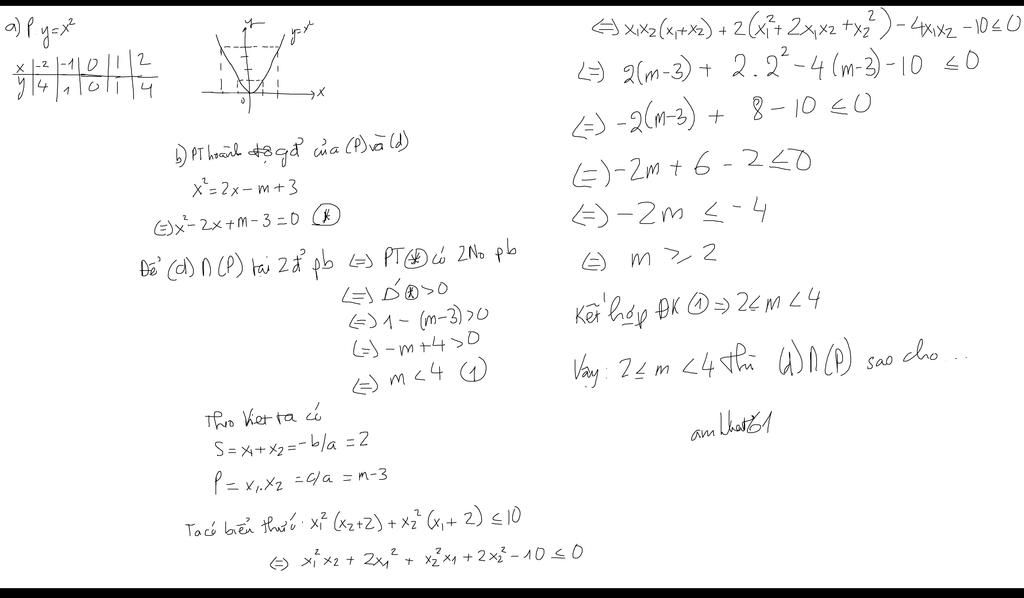 a) P y=x²
y
y=x²
x | -2 | -1 | 0 | 1 | 2
y | 4 | 1 | 0 | 1 | 4
0
x
b) PT hoành gđ của (P) và (d)
x² = 2x - m + 3
(=) x² - 2x + m - 3 = 0 (*)
Để (d) ∩ (P) tại 2 đ' pb (=) PT (*) có 2 No pb
(=) Δ'(*) > 0
(=) 1 - (m-3) > 0
(=) -m+4 > 0
(=) m < 4 (1)
Theo Viet ta có
S = x₁ + x₂ = -b/a = 2
P = x₁.x₂ = c/a = m-3
Ta có biểu thức: x₁²(x₂+2) + x₂²(x₁+2) ≤ 10
(=) x₁²x₂ + 2x₁² + x₂²x₁ + 2x₂² - 10 ≤ 0
(=) x₁x₂(x₁+x₂) + 2(x₁² + 2x₁x₂ + x₂²) - 4x₁x₂ - 10 ≤ 0
(=) 2(m-3) + 2.2² - 4(m-3) - 10 ≤ 0
(=) -2(m-3) + 8 - 10 ≤ 0
(=) -2m + 6 - 2 ≤ 0
(=) -2m ≤ -4
(=) m ≥ 2
Kết hợp ĐK (1) => 2 ≤ m < 4
Vậy: 2 ≤ m < 4 thì (d) ∩ (P) sao cho ..